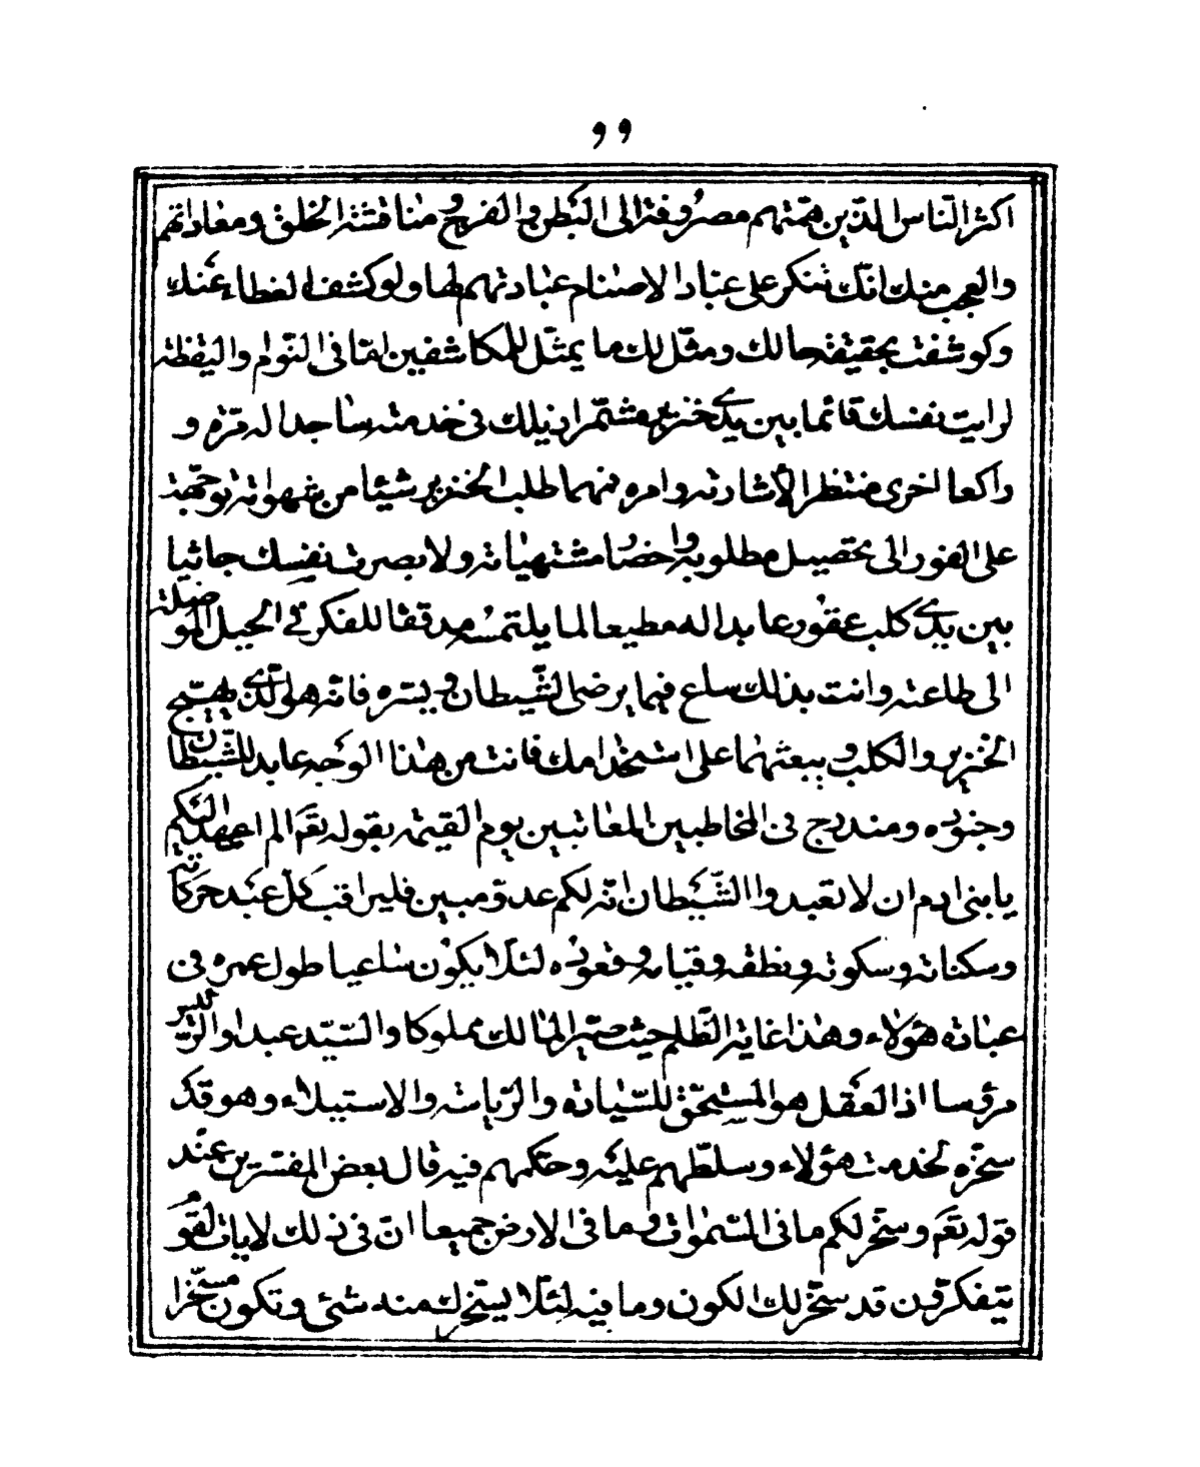 ٩٩
اكثر النّاس الذّين همّتهم مصروفة الى البطن والفرج ومناقشة الخلق ومعاداتهم
والعجب منك انّك تنكر على عبّاد الاصنام عبادتهم لها ولو كشف الغطاء عنك
وكوشفت بحقيقة حالك ومثّل لك ما يمثّل للمكاشفين امّا فى النّوم او اليقظة
لرايت نفسك قائما بين يدى خنزير مشتمّرا ذيلك فى خدمته ساجدا له مرّة و
راكعا اخرى منتظرا لأشارته وامره فمهما طلب الخنزير شيئا من شهواته توجّهت
على الفور الى تحصيل مطلوبه واحضار مشتهياته ولا بصرت نفسك جاثيا
بين يدى كلب عقور عابدا له مطيعا لما يلتمسه مدققا للفكر فى الحيل الموصلة
الى طاعته وانت بذلك ساع فيما يرضى الشّيطان ويسرّه فانّه هو الّذى يهيّج
الخنزير والكلب ويبعثهما على استخدامك فانت من هذا الوجه عابد للشّيطان
وجنوده ومندرج فى المخاطبين المعاتبين يوم القيمة بقوله تعم الم اعهد اليكم
يا بنى ادم ان لا تعبدوا الشّيطان انّه لكم عدوّ مبين فليراقب كلّ عبد حركاته
وسكناته وسكوته ونطقه وقيامه وقعوده لئلّا يكون ساعيا طول عمره فى
عبادة هؤلاء وهذا غاية الظّلم حيث صيّر المالك مملوكا والسّيّد عبدا والرّئيس
مرؤسا اذ العقل هو المستحقّ للسّيادة والرّياسة والاستيلاء وهو قد
سخّره لخدمت هؤلاء وسلطّهم عليه وحكمهم فيه قال بعض المفسّرين عند
قوله تعم وسخّر لكم ما فى السّموات وما فى الارض جميعا انّ فى ذلك لايات لقوم
يتفكّرون قد سخّر لك الكون وما فيه لئلّا يسخّرك منه شئ وتكون مسخّرا